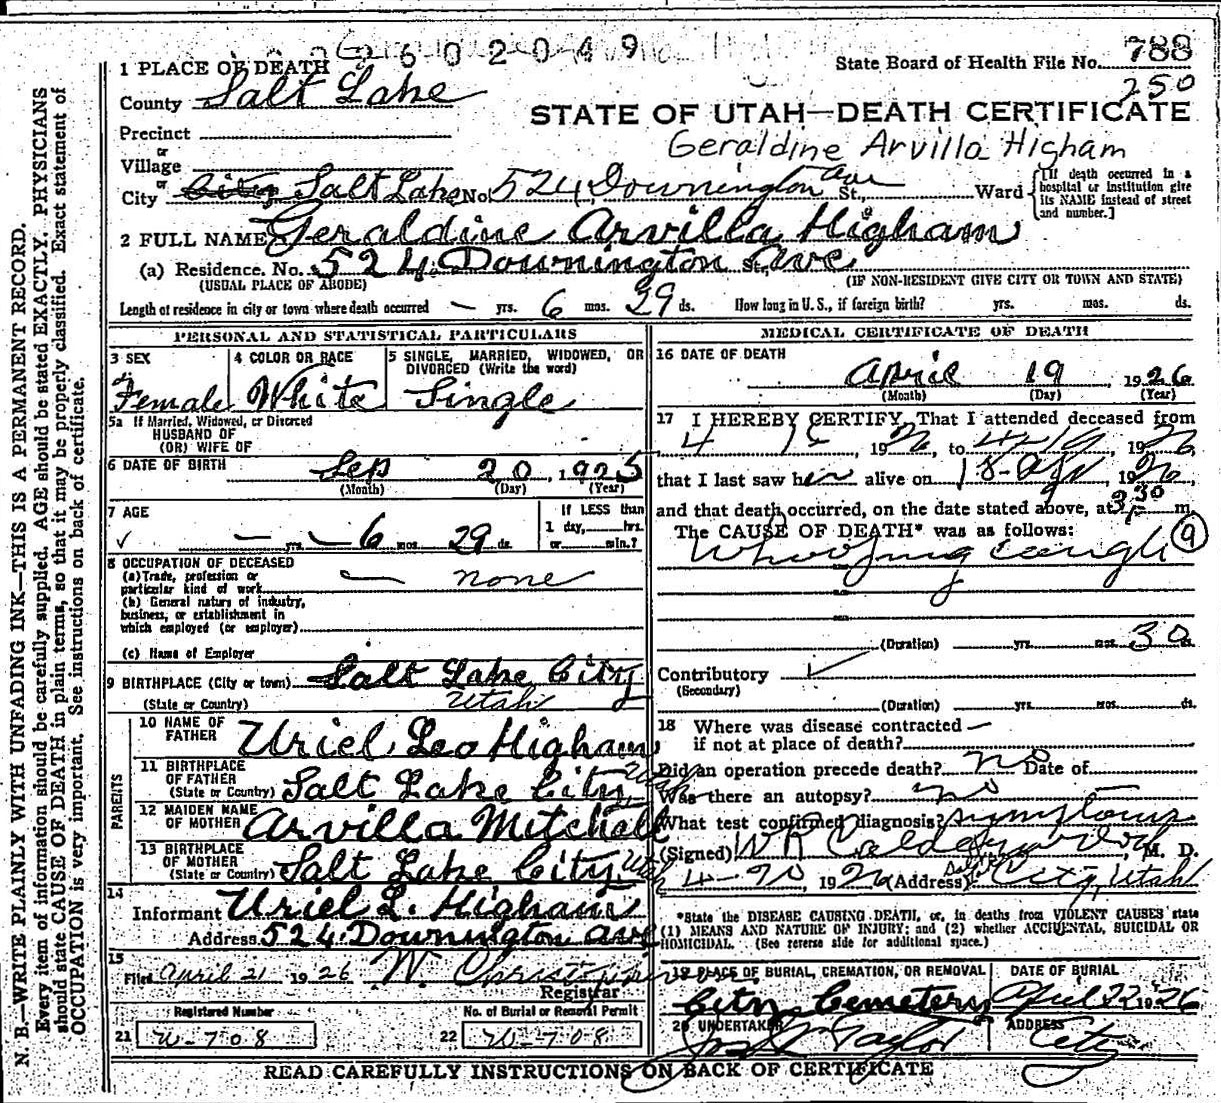 2602049
State Board of Health File No. 788
250
1 PLACE OF DEATH
County Salt Lake
STATE OF UTAH—DEATH CERTIFICATE
Precinct
or
Geraldine Arvilla Higham
Village
or
City City Salt Lake No. 524 Downington Ave St., Ward
[If death occurred in a hospital or institution give its NAME instead of street and number.]
2 FULL NAME Geraldine Arvilla Higham
(a) Residence. No. 524 Downington St., Ave
(USUAL PLACE OF ABODE) (IF NON-RESIDENT GIVE CITY OR TOWN AND STATE)
Length of residence in city or town where death occurred — yrs. 6 mos. 29 ds. How long in U. S., if foreign birth? yrs. mos. ds.
PERSONAL AND STATISTICAL PARTICULARS
3 SEX
Female
4 COLOR OR RACE
White
5 SINGLE, MARRIED, WIDOWED, OR
DIVORCED (Write the word)
Single
5a If Married, Widowed, or Divorced
HUSBAND OF
(OR) WIFE OF
6 DATE OF BIRTH Sep 20, 1925
(Month) (Day) (Year)
7 AGE
— yrs. — 6 mos. 29 ds.
If LESS than
1 day, hrs.
or min.?
8 OCCUPATION OF DECEASED
(a) Trade, profession or
particular kind of work — none
(b) General nature of industry,
business, or establishment in
which employed (or employer)
(c) Name of Employer
9 BIRTHPLACE (City or town) Salt Lake City
(State or Country) Utah
PARENTS
10 NAME OF
FATHER Uriel Leo Higham
11 BIRTHPLACE
OF FATHER
(State or Country) Salt Lake City, Utah
12 MAIDEN NAME
OF MOTHER Arvilla Mitchell
13 BIRTHPLACE
OF MOTHER
(State or Country) Salt Lake City Utah
14
Informant Uriel L. Higham
Address 524 Downington Ave
15
Filed April 21 1926 W.
Registrar
Registered Number
21 W-708
No. of Burial or Removal Permit
22 W-708
MEDICAL CERTIFICATE OF DEATH
16 DATE OF DEATH
April 19, 1926
(Month) (Day) (Year)
17 I HEREBY CERTIFY, That I attended deceased from
4 1926, to 4-19, 1926
that I last saw her alive on 18-Apr 1926,
and that death occurred, on the date stated above, at 3:30 m.
The CAUSE OF DEATH* was as follows:
Whooping cough 9
(Duration) yrs. mos. 30 ds.
Contributory
(Secondary)
(Duration) yrs. mos. ds.
18 Where was disease contracted —
if not at place of death?
Did an operation precede death? no Date of
Was there an autopsy? no
What test confirmed diagnosis? symptoms
(Signed) W R Calderwood, M. D.
4-20, 1926 (Address) Salt Lake City, Utah
*State the DISEASE CAUSING DEATH, or, in deaths from VIOLENT CAUSES state
(1) MEANS AND NATURE OF INJURY; and (2) whether ACCIDENTAL, SUICIDAL OR
HOMICIDAL. (See reverse side for additional space.)
19 PLACE OF BURIAL, CREMATION, OR REMOVAL
City Cemetery
DATE OF BURIAL
April 22 1926
20 UNDERTAKER
Taylor
ADDRESS
City
READ CAREFULLY INSTRUCTIONS ON BACK OF CERTIFICATE
N. B.—WRITE PLAINLY WITH UNFADING INK—THIS IS A PERMANENT RECORD.
Every item of information should be carefully supplied. AGE should be stated EXACTLY. PHYSICIANS
should state CAUSE OF DEATH in plain terms, so that it may be properly classified. Exact statement of
OCCUPATION is very important. See instructions on back of certificate.